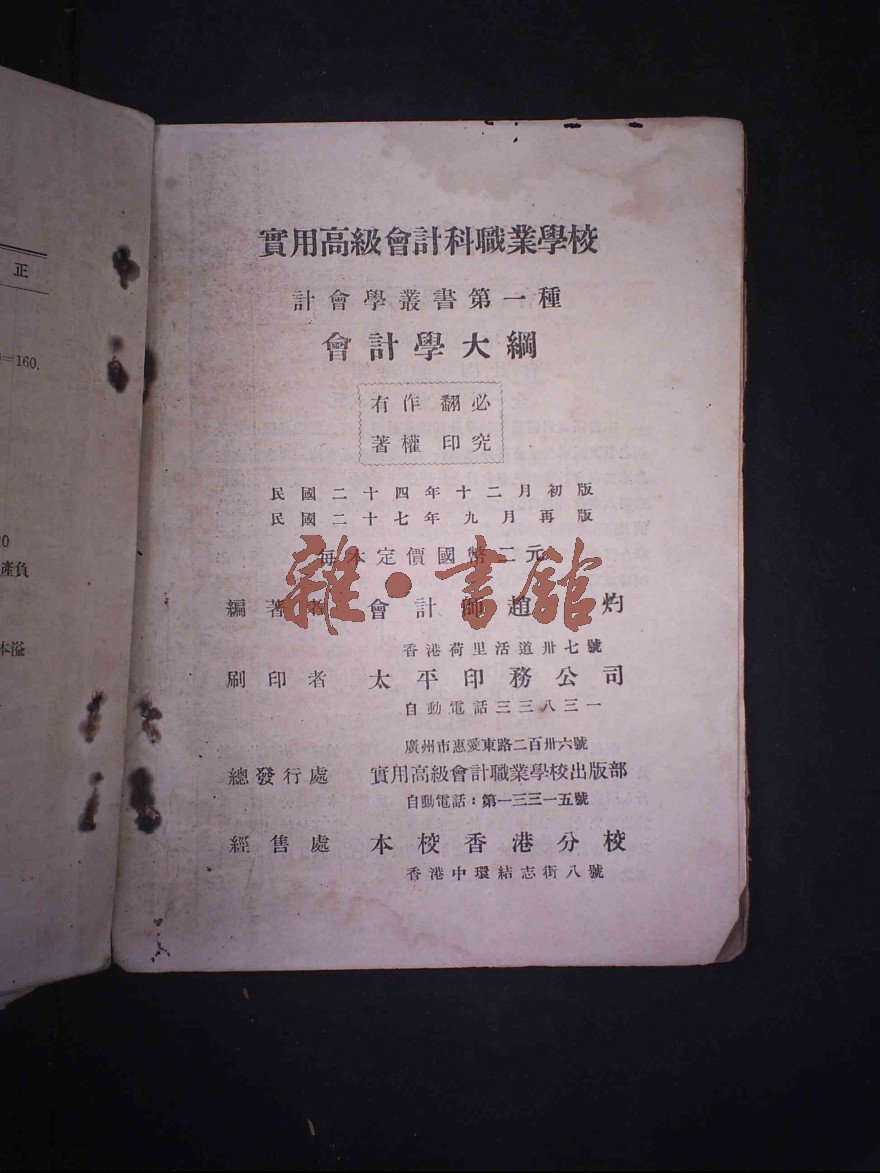 正
=160.
產負
本溢
實用高級會計科職業學校
計會學叢書第一種
會計學大綱
有作翻必
著權印究
民國二十四年十二月初版
民國二十七年九月再版
每本定價國幣二元
雜·書館
編著者 會計師趙灼
香港荷里活道卅七號
刷印者 太平印務公司
自動電話三三八三一
廣州市惠愛東路二百卅六號
總發行處 實用高級會計職業學校出版部
自動電話：第一三三一五號
經售處 本校香港分校
香港中環結志街八號